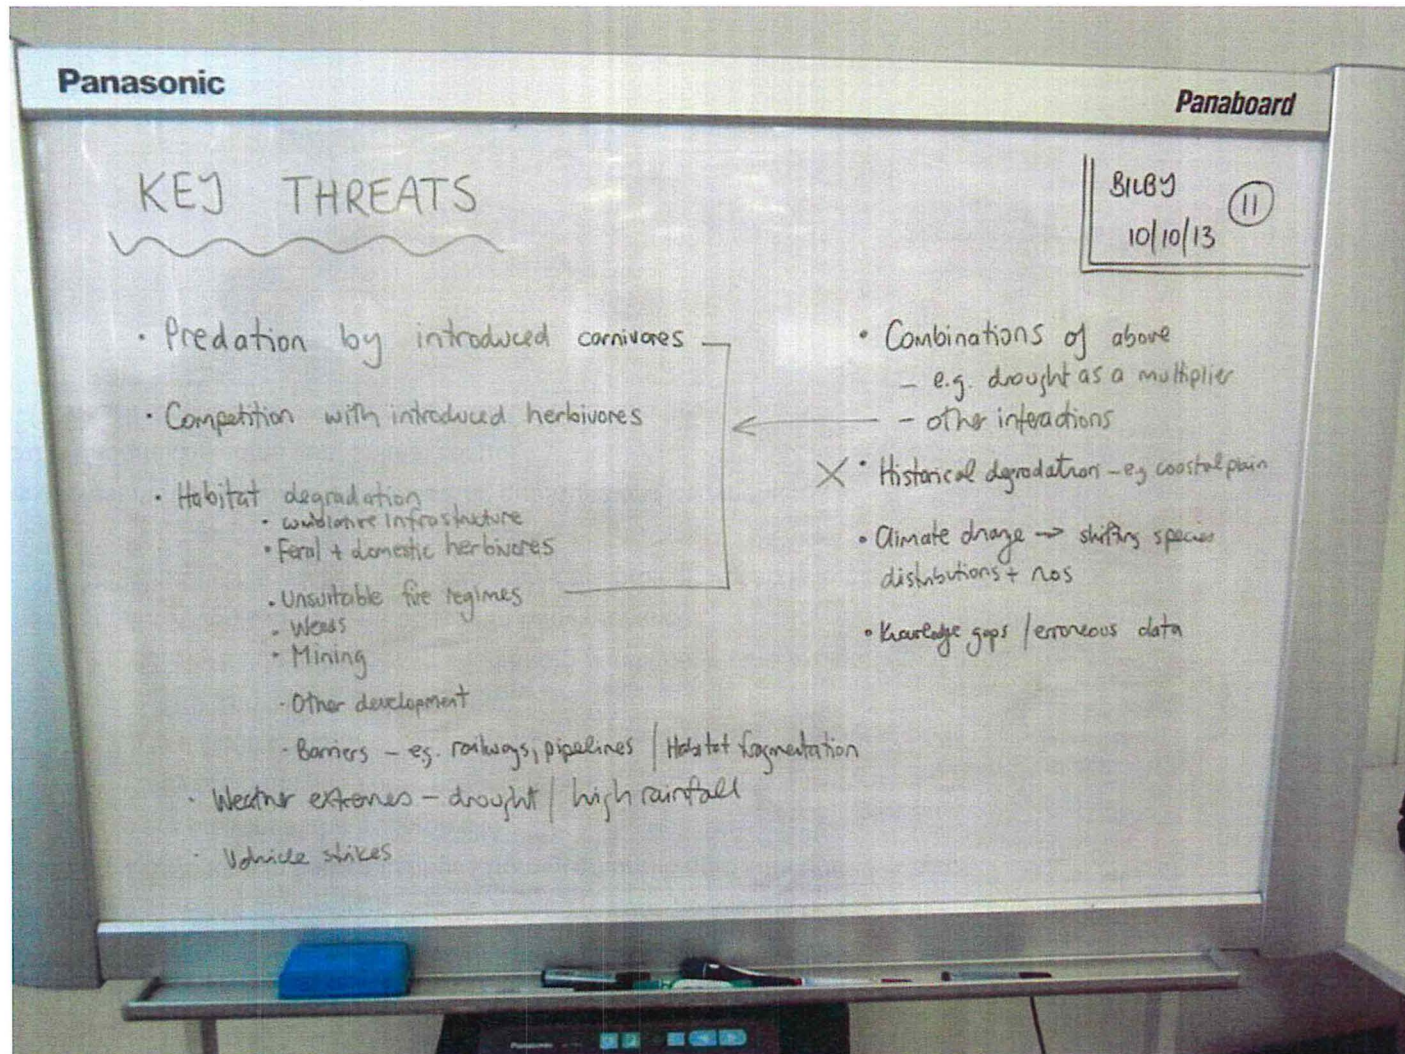 Panasonic
Panaboard
KEY THREATS
BILBY
11
10/10/13
· Predation by introduced carnivores
· Competition with introduced herbivores
· Habitat degradation
· infrastructure
· Feral + domestic herbivores
· Unsuitable fire regimes
· Weeds
· Mining
· Other development
· Barriers – e.g. railways, pipelines / Habitat fragmentation
· Weather extremes – drought / high rainfall
· Vehicle strikes
· Combinations of above
– e.g. drought as a multiplier
– other interactions
X · Historical degradation – eg coastal plain
· Climate change → shifting species
distributions + nos
· Knowledge gaps / erroneous data
Panasonic